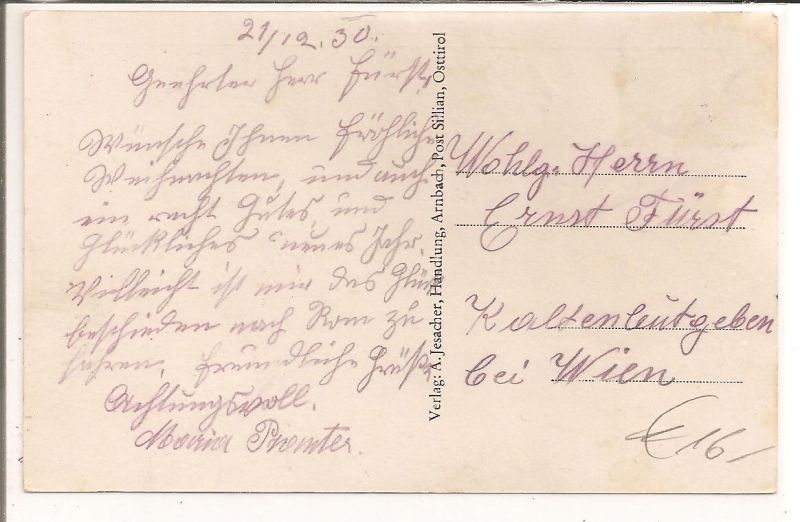 21/12. 30.
Geehrter Herr Fürst,
Wünsche Ihnen fröhliche
Weihnachten, und auch
ein recht Gutes, und
Glückliches neues Jahr.
Vielleicht ist mir das Glück
beschieden nach Rom zu
fahren. Freundliche Grüße
Achtungsvoll.
Maria
Verlag: A. Jesacher, Handlung, Arnbach, Post Sillian, Osttirol
Wohlg. Herrn
Ernst Fürst
Kaltenleutgeben
bei Wien
16/-